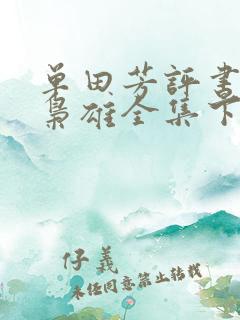 单田芳评书
枭雄全集下
仔義
未经同意禁止转载